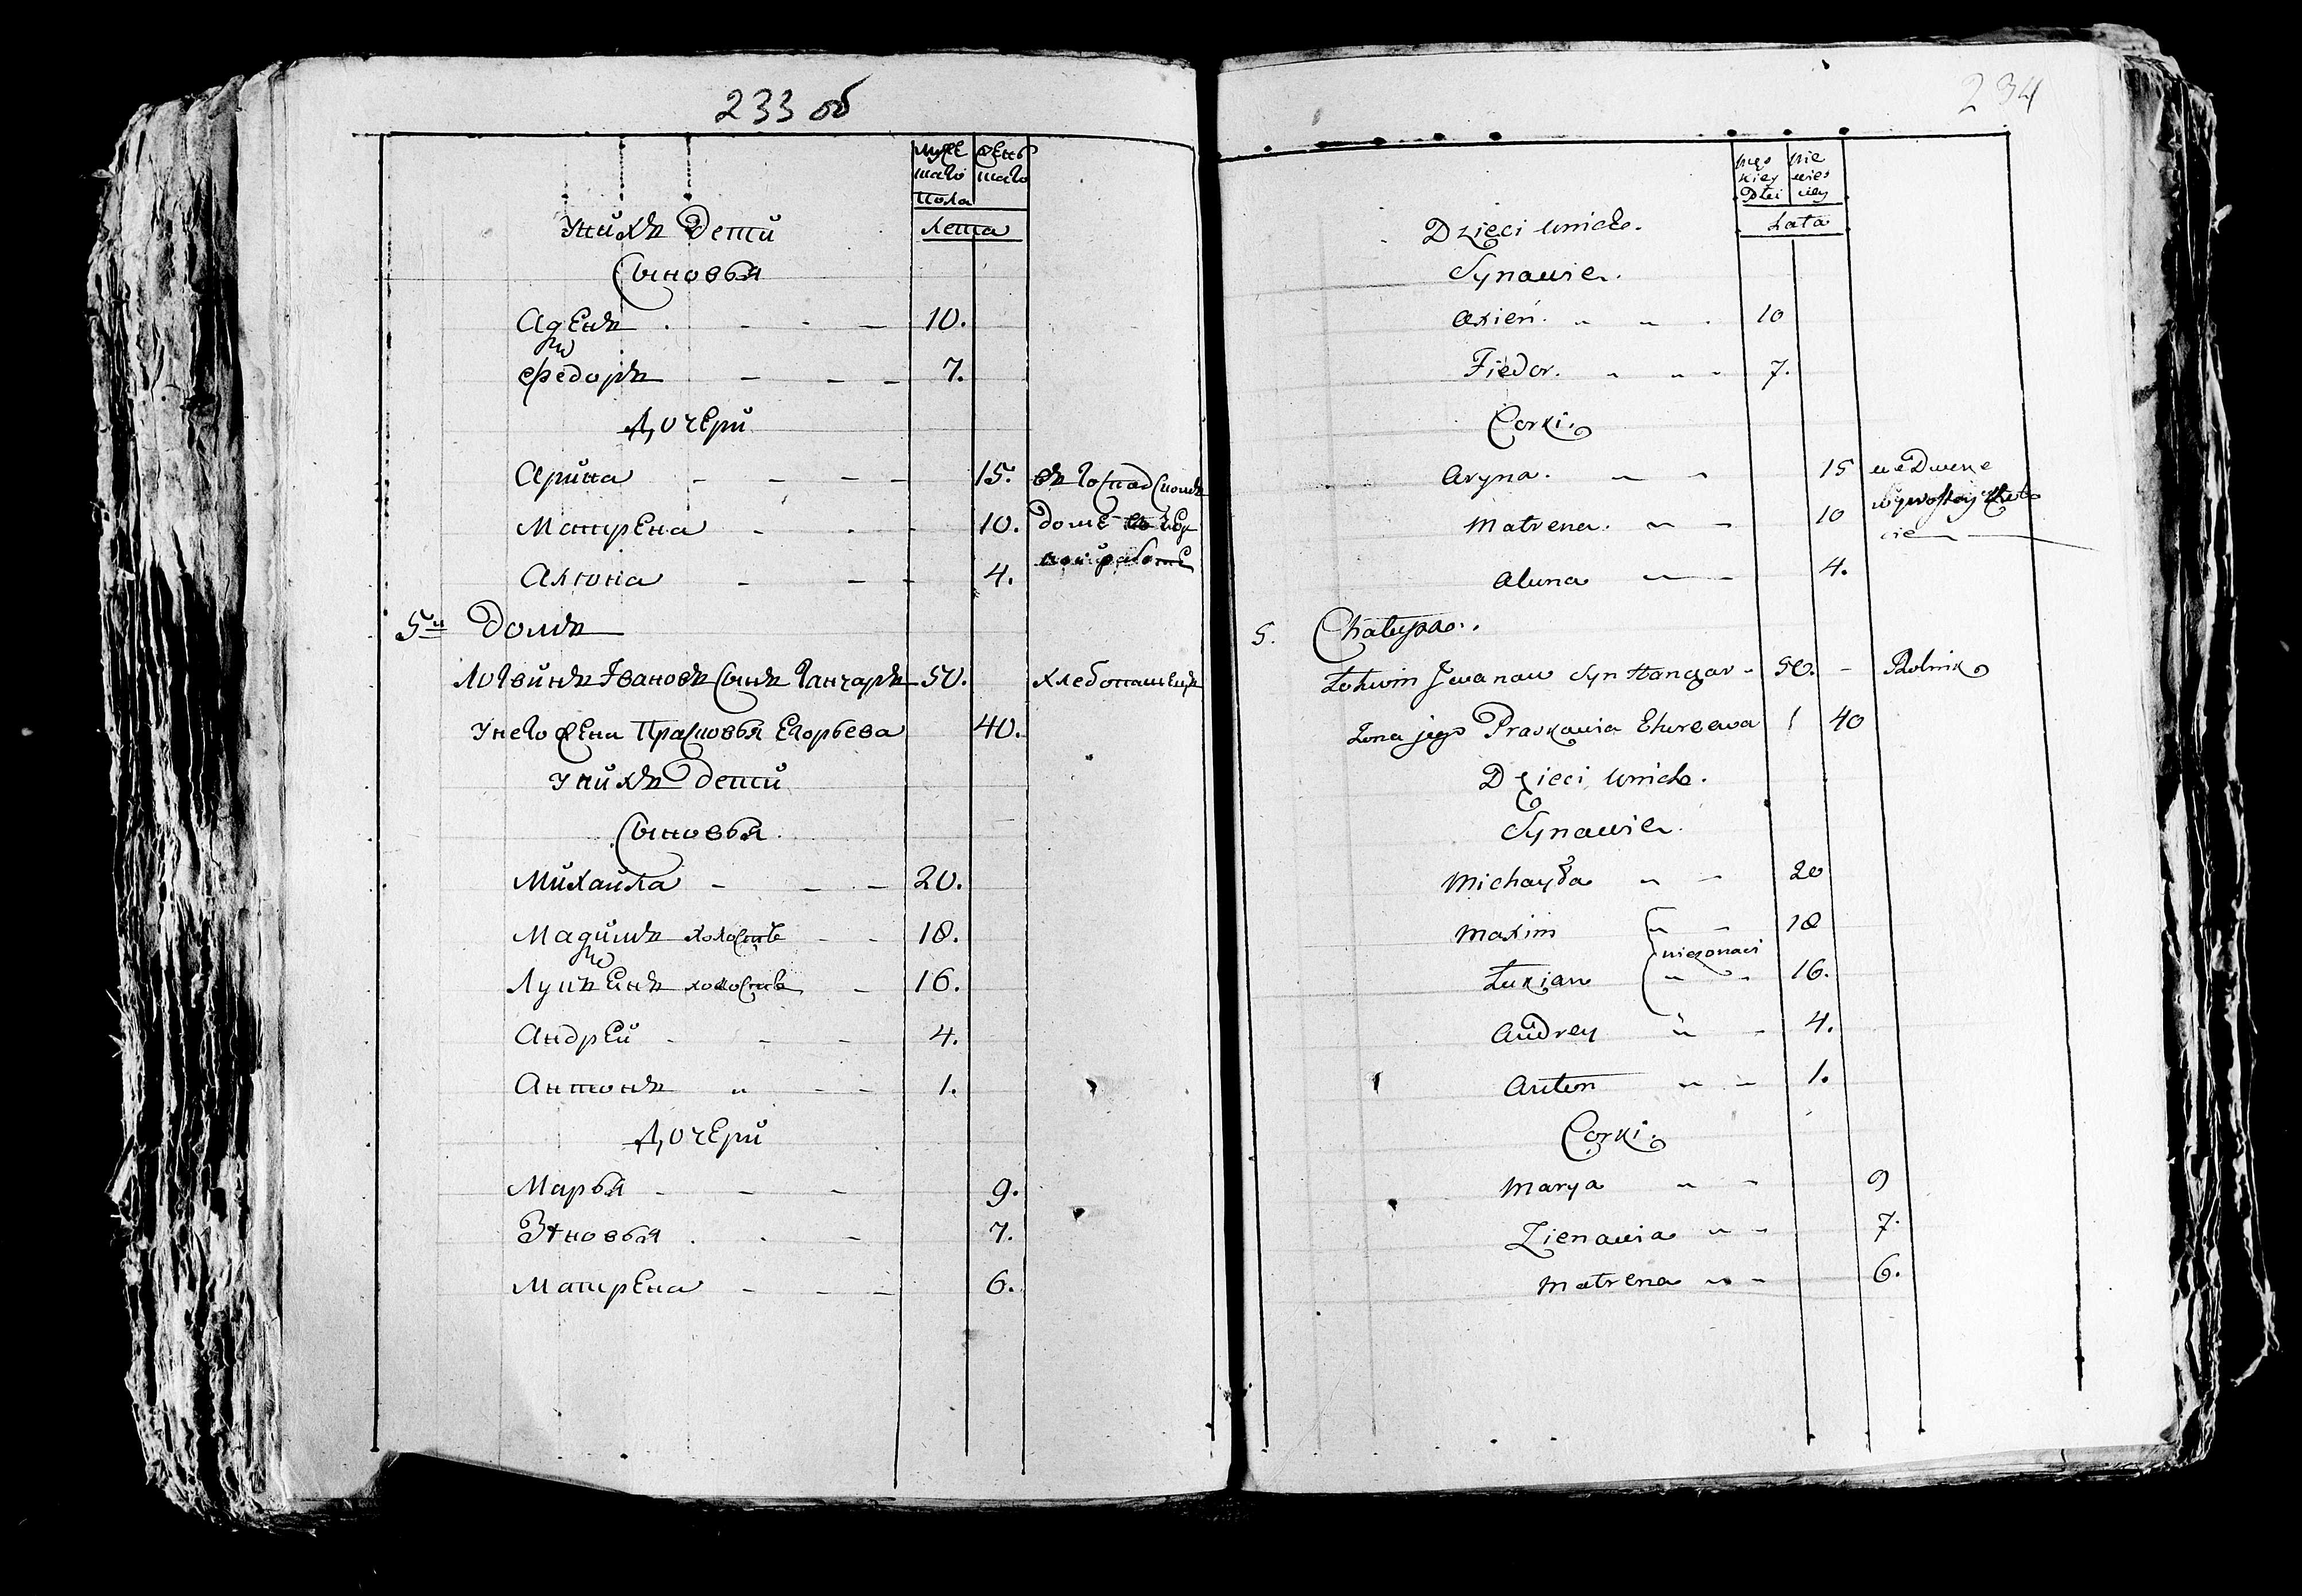 233 об
муже женъ
скаго скаго
пола
лета
Унихъ Дети
Сыновья
10.
Федоръ 7.
Дочери
Арина 15. въ Господскомъ
Матрена 10. доме
Алюна 4. работе
5й Домъ
Логвинъ Ивановъ Сынъ Ганчаръ 50. хлебопашецъ
Унего жена Прасковья Егорьева 40.
Унихъ Дети
Сыновья
Михаила 20.
холостъ 18.
холостъ 16.
Андрей 4.
Антонъ 1.
Дочери
Марья 9.
Зѣновья 7.
Матрена 6.
234
Męs nie
kiey wies
Płci
Lata
Dzieci unich.
Synawie.
Axien. 10
Fiedor. 7.
Corki.
Aryna. 15 we Dworze
Matrena. 10
Aluna 4.
5. Chałupa.
Łohwin Jwanow Syn Hanczar 50. Rolnik
Żona jego Praskawia Ehoreewa 40
Dzieci unich.
Synawie.
Michayła 20
Maxim 18
nieżonaci
Łukian 16.
Andrey 4.
Anton 1.
Corki.
Marya 9
Zienawia 7.
Matrena 6.